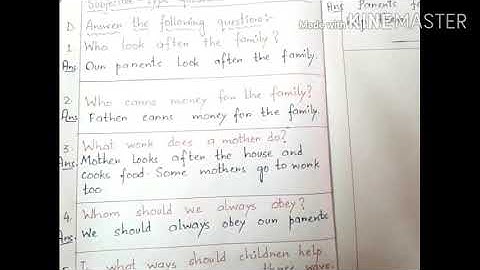 Subjective Type
Ans Parents
Made with KINEMASTER
D. Answer the following question:-
1. Who look after the family?
Ans. Our parents look after the family.
2. Who earns money for the family?
Ans Father earns money for the family.
3. What work does a mother do?
Ans. Mother looks after the house and
cooks food. Some mothers go to work
too
4. Whom should we always obey?
Ans. We should always obey our parents
what ways should children help
these ways.